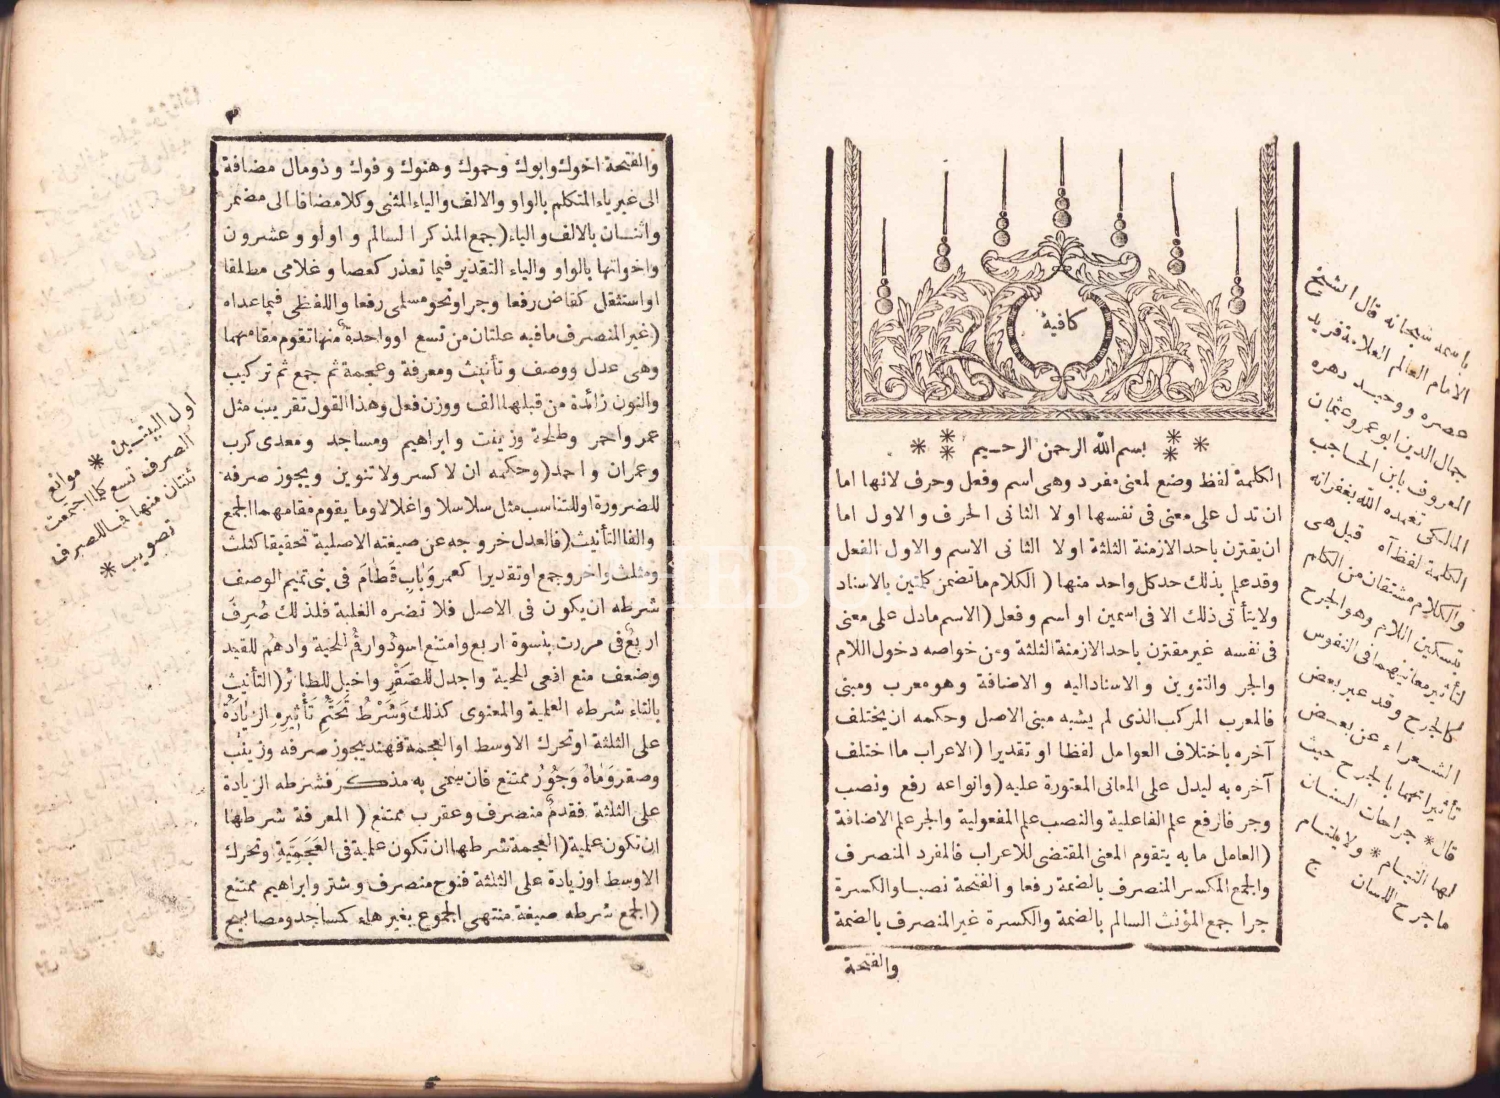 كافية
بسم الله الرحمن الرحيم
الكلمة لفظ وضع لمعنى مفرد وهى اسم وفعل وحرف لانها اما
ان تدل على معنى فى نفسها اولا الثانى الحرف والاول اما
ان يقترن باحد الازمنة الثلثة اولا الثانى الاسم والاول الفعل
وقد علم بذلك حد كل واحد منها ( الكلام ما تضمن كلمتين بالاسناد
ولا يتأتى ذلك الا فى اسمين او اسم وفعل (الاسم ما دل على معنى
فى نفسه غير مقترن باحد الازمنة الثلثة ومن خواصه دخول اللام
والجر والتنوين والاسناد اليه والاضافة وهو معرب ومبنى
فالمعرب المركب الذى لم يشبه مبنى الاصل وحكمه ان يختلف
آخره باختلاف العوامل لفظا او تقديرا (الاعراب ما اختلف
آخره به ليدل على المعانى المعتورة عليه (وانواعه رفع ونصب
وجر فالرفع علم الفاعلية والنصب علم المفعولية والجر علم الاضافة
(العامل ما به يتقوم المعنى المقتضى للاعراب فالمفرد المنصرف
والجمع المكسر المنصرف بالضمة رفعا والفتحة نصبا والكسرة
جرا جمع المؤنث السالم بالضمة والكسرة غير المنصرف بالضمة
والفتحة
باسمه سبحانه قال الشيخ
الامام العالم العلامة فريد
عصره ووحيد دهره
جمال الدين ابو عمرو عثمان
المعروف بابن الحاجب
المالكى تغمده الله بغفرانه
الكلمة لفظ آه قيل هى
والكلام مشتقان من الكلم
بتسكين اللام وهو الجرح
لتأثير معانيهما فى النفوس
كالجرح وقد عبر بعض
الشعراء عن بعض
تأثيراتهما بالجرح حيث
قال * جراحات السنان
لها التيام * ولا يلتام
ما جرح اللسان ج
٣
والفتحة اخوك وابوك وحموك وهنوك وفوك وذو مال مضافة
الى غير ياء المتكلم بالواو والالف والياء المثنى وكلا مضافا الى مضمر
واثنان بالالف والياء (جمع المذكر السالم و اولو وعشرون
واخواتها بالواو والياء التقدير فيما تعذر كعصا وغلامى مطلقا
او استثقل كقاض رفعا وجرا ونحو مسلمى رفعا واللفظى فيما عداه
(غير المنصرف ما فيه علتان من تسع او واحدة منها تقوم مقامهما
وهى عدل ووصف وتأنيث ومعرفة وعجمة ثم جمع ثم تركيب
والنون زائدة من قبلها الف ووزن فعل وهذا القول تقريب مثل
عمر واحمر وطلحة وزينب وابراهيم ومساجد ومعدى كرب
وعمران واحمد (وحكمه ان لا كسر ولا تنوين ويجوز صرفه
للضرورة او للتناسب مثل سلاسلا واغلالا وما يقوم مقامهما الجمع
والفا التأنيث (فالعدل خروجه عن صيغته الاصلية تحقيقا كثلث
ومثلث واخر وجمع او تقديرا كعمر وَبابِ قَطَامَ فى بنى تميم الوصف
شرطه ان يكون فى الاصل فلا تضره الغلبة فلذلك صُرِفَ
اربعٌ فى مررت بنسوة اربع وامتنع اسودُ وارقمُ للحية وادهمُ للقيد
وضعف منع افعى للحية واجدل للصَقْرِ واخيل للطائر (التأنيث
بالتاء شرطه العلمية والمعنوى كذلك وَشَرْطُ تَحَتُّمِ تَأْثِيرِهِ الزيادَةُ
على الثلثة او تحرك الاوسط او العجمة فهند يجوز صرفه وزينب
وسقر وَمَاهُ وَجُورُ ممتنع فان سمى به مذكر فشرطه الزيادة
على الثلثة فقدمٌ منصرف وعقرب ممتنع ( المعرفة شرطها
ان تكون علمية (العجمة شرطها ان تكون علمية فى العَجَمِيَّةِ وتحرك
الاوسط او زيادة على الثلثة فنوح منصرف وشتر وابراهيم ممتنع
(الجمع شرطه صيغة منتهى الجموع بغير هاء كمساجد ومصابيح
اول البيتين * موانع
الصرف تسع كلما اجتمعت
ثنتان منها فما للصرف
تصويب *